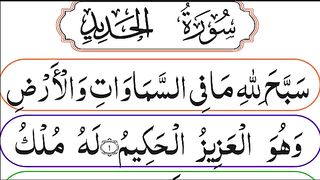 سُورَةُ الحَدِيدِ
سَبَّحَ لِلهِ مَا فِي السَّمَاوَاتِ وَالْأَرْضِ
وَهُوَ الْعَزِيزُ الْحَكِيمُ ۝١ لَهُ مُلْكُ